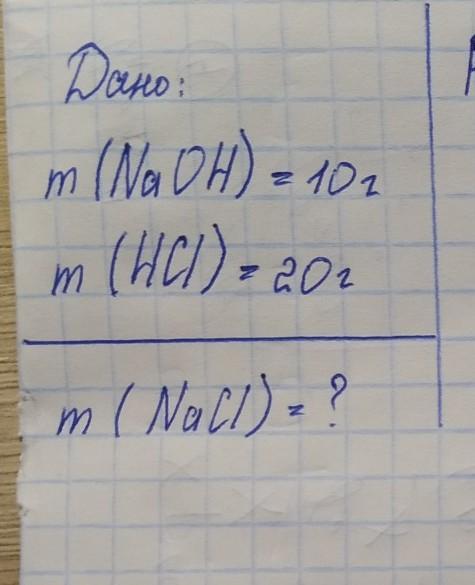 Дано:
m (NaOH) = 10г
m (HCl) = 20г
m (NaCl) = ?